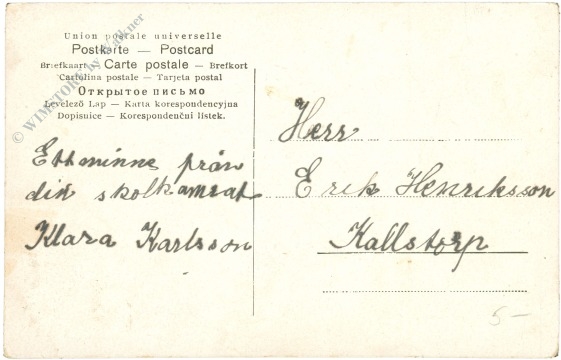 Union postale universelle
Postkarte — Postcard
Briefkaart — Carte postale — Brefkort
Cartolina postale — Tarjeta postal
Открытое письмо
Levelező Lap — Karta korespondencyjna
Dopisnice — Korespondenční listek.
Ett minne från
din skolkamrat
Klara Karlsson
Herr
Erik Henriksson
Kallstorp
5-